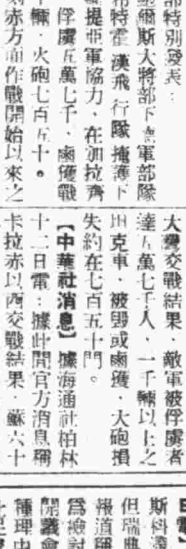 部特別發表：
爾斯大將部下德軍部隊
布特霍漢飛行隊掩護下
提亞軍協力，在加拉齊
俘虜五萬七千，鹵獲戰
輛，火砲七百五十。
刻赤方面作戰開始以來之
大 交戰結果，敵軍被俘虜者
達五萬七千人，一千輛以上之
坦克車，被毀或鹵獲，大砲損
失約在七百五十門。
【中華社消息】據海通社柏林
十二日電：據此間官方消息稱
卡拉赤以西交戰結果，蘇六十
斯科
但瑞典
報道
爲檢討
開議會
種理由